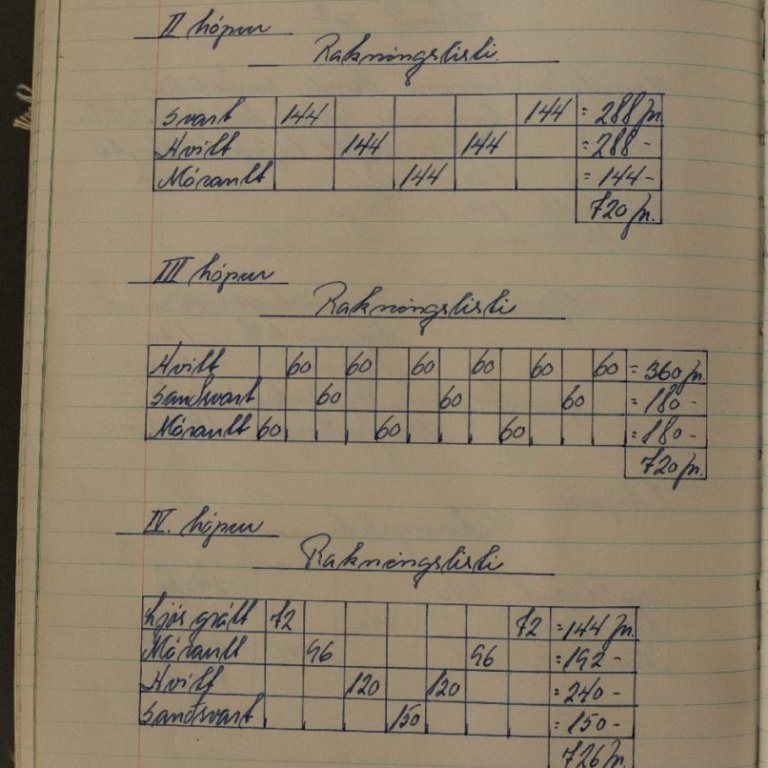 II hópur
Rakningslisti
Svart 144 144 = 288 þr.
Hvítt 144 144 = 288 -
Mórautt 144 = 144 -
720 þr.
III hópur
Rakningslisti
Hvítt 60 60 60 60 60 60 = 360 þr.
Sandsvart 60 60 60 = 180 -
Mórautt 60 60 60 = 180 -
720 þr.
IV. hópur
Rakningslisti
Ljós grátt 72 72 = 144 þr.
Mórautt 96 96 = 192 -
Hvítt 120 120 = 240 -
Sandsvart 150 = 150 -
726 þr.